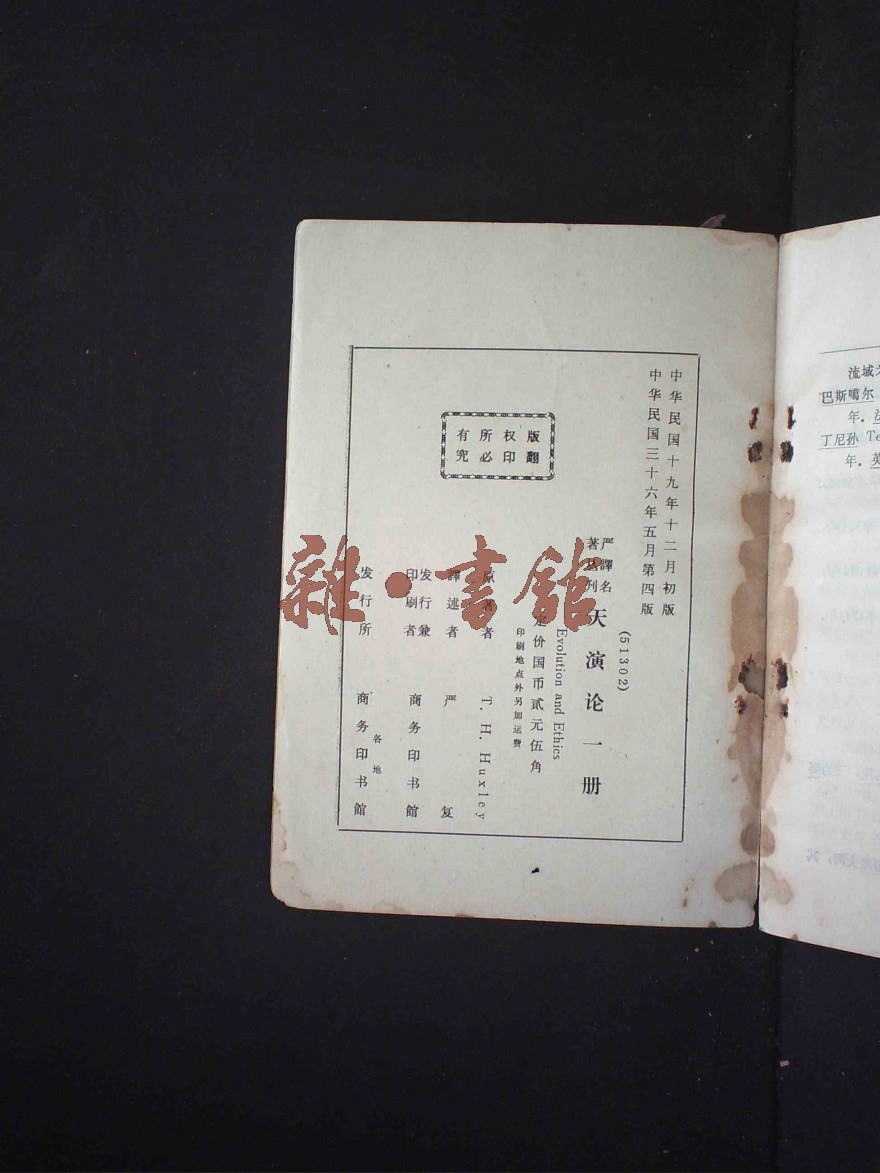 中华民国十九年十二月初版
中华民国三十六年五月第四版
(51302)
严譯名
著丛刊
天演论一册
Evolution and Ethics
定价国币贰元伍角
印刷地点外另加运费
版权所有
翻印必究
原著者 T. H. Huxley
譯述者 严复
发行兼
印刷者 商务印书館
发行所 各地 商务印书館
雜·書館
流域
巴斯噶尔
年，法
丁尼孙 Te
年，英